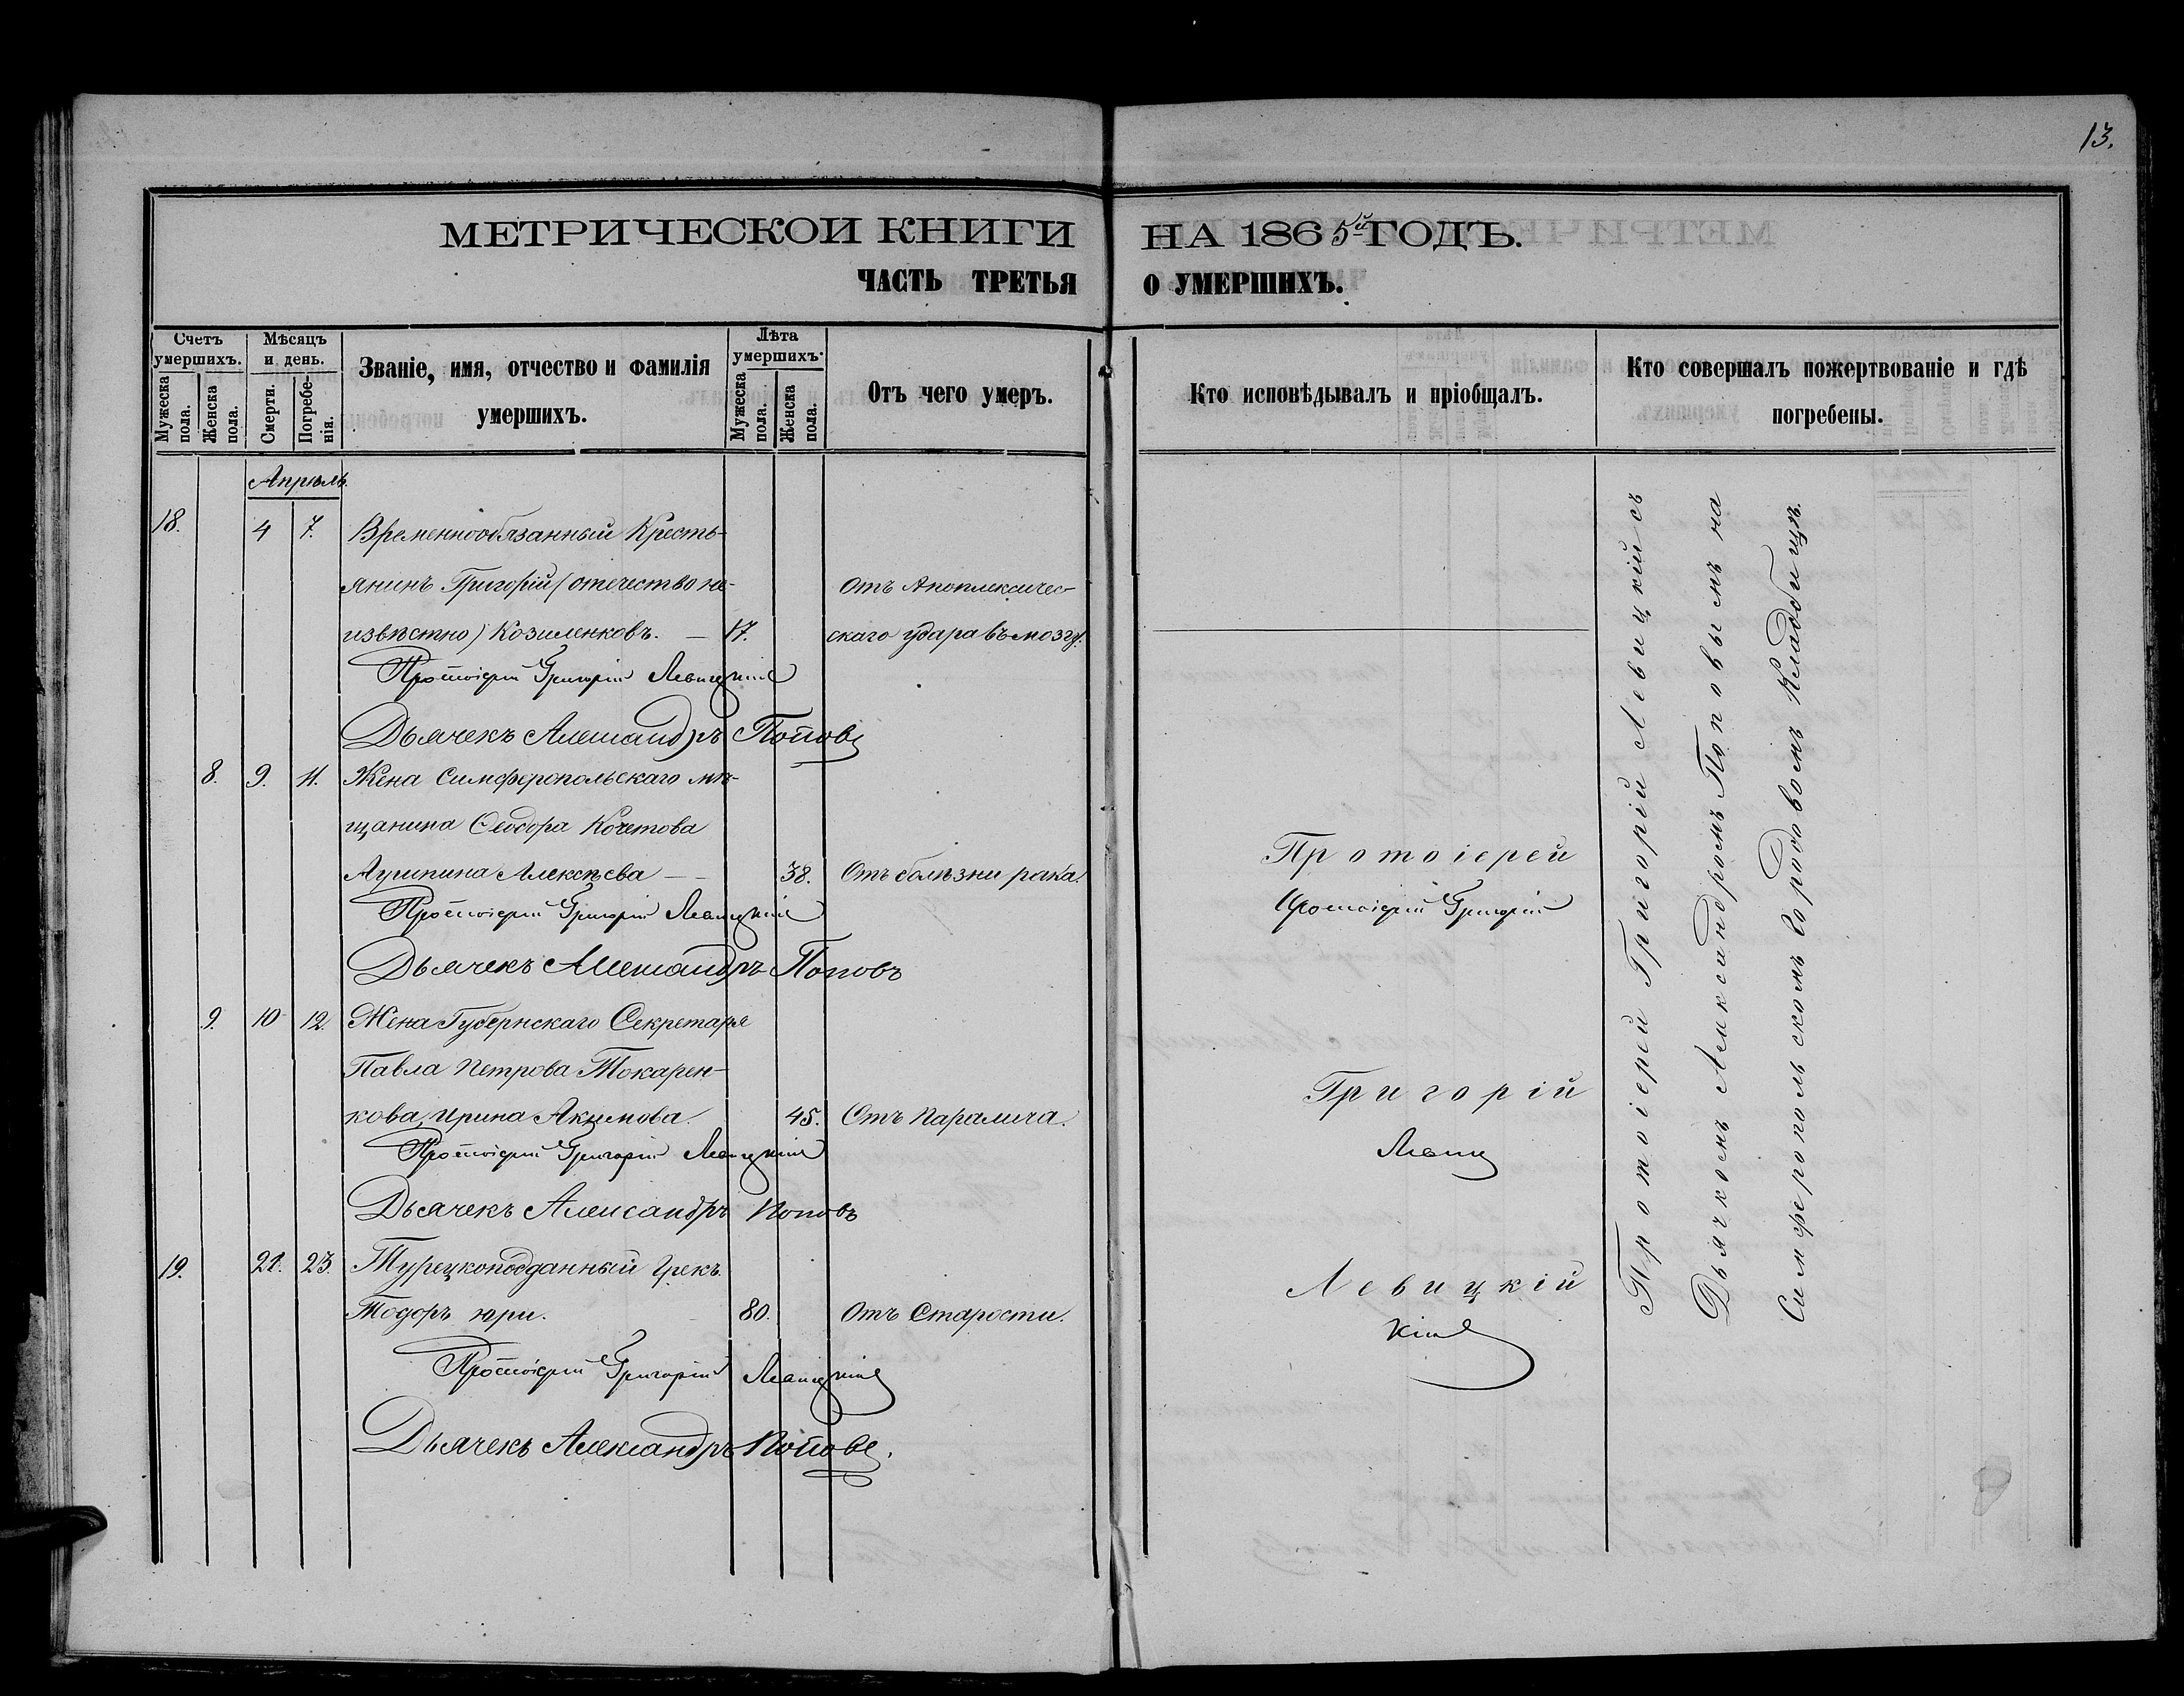 13.
МЕТРИЧЕСКОИ КНИГИ НА 1865й ГОДЪ.
ЧАСТЬ ТРЕТЬЯ О УМЕРШИХЪ.
Счетъ умершихъ.
Мужеска пола.
Женска пола.
Мѣсяцъ и день.
Смерти.
Погребенія.
Званіе, имя, отчество и фамилія умершихъ.
Лѣта умершихъ.
Мужеска пола.
Женска пола.
Отъ чего умеръ.
Кто исповѣдывалъ и пріобщалъ.
Кто совершалъ пожертвованіе и гдѣ погребены.
Апрѣль.
18. 4 7. Временнообязанный Кресть-
янинъ Григорій (отечество не- Отъ Апоплексичес-
извѣстно) Козиленковъ. — 17. скаго удара въ мозгу.
Протоіерей Григорій Левицкій
Дьячекъ Александръ Поповъ
8. 9. 11. Жена Симферопольскаго мѣ-
щанина Ѳеодора Кочетова
Агрипина Алексѣева — 38. Отъ болѣзни рака.
Протоіерей Григорій Левицкій
Дьячекъ Александръ Поповъ
9. 10 12. Жена Губернскаго Секретаря
Павла Петрова Токарен-
кова, Ирина Акимова. 45. Отъ Паралича.
Протоіерей Григорій Левицкій
Дьячекъ Александръ Поповъ
19. 21. 23. Турецкоподданный Грекъ.
Тодоръ Юри. 80. Отъ Старости.
Протоіерей Григорій Левицкій
Дьячекъ Александръ Поповъ.
Протоіерей
Протоіерей Григорій
Григорій
Левиц
Левицкій
кій
Протоіерей Григорій Левицкій съ
Дьячкомъ Александромъ Поповымъ на
Симферопольскомъ Городовомъ Кладбищѣ.